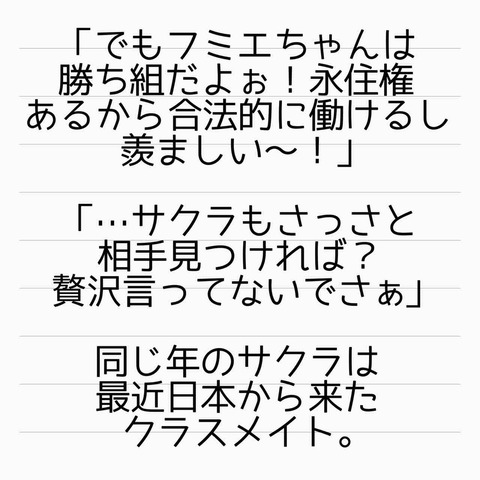 「でもフミエちゃんは
勝ち組だよぉ！永住権
あるから合法的に働けるし
羨ましい〜！」
「…サクラもさっさと
相手見つければ？
贅沢言ってないでさぁ」
同じ年のサクラは
最近日本から来た
クラスメイト。